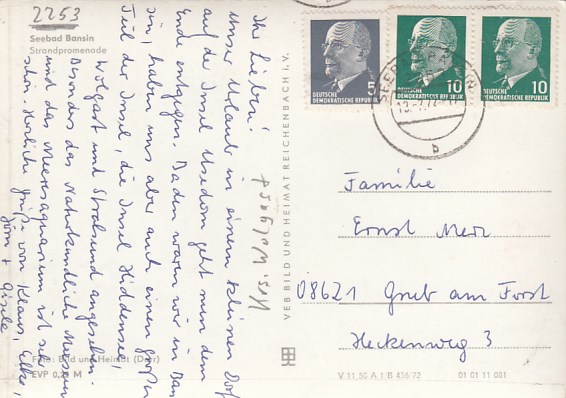 2253
Seebad Bansin
Strandpromenade
Ihr Lieben!
Unser Urlaub in einem kleinen Dorf
auf der Insel Usedom geht nun dem
Ende entgegen. Baden waren wir in Ban
sin, haben uns aber auch einen großen
Teil der Insel, die Insel Hiddensee,
Wolgast und Stralsund angesehen.
Besonders das Naturkundliche Museum
und das Meeresaquarium ist sehr
schön. Herzliche Grüße von Klaus, Elke,
Jörn + Gisela
Foto: Bild und Heimat (Darr)
EVP 0,20 M
VEB BILD UND HEIMAT REICHENBACH i. V.
5
DEUTSCHE
DEMOKRATISCHE REPUBLIK
10
DEUTSCHE
DEMOKRATISCHE REPUBLIK
10
DEUTSCHE
DEMOKRATISCHE REPUBLIK
b
Familie
Ernst Merz
08621 Grub am Forst
Heckenweg 3
V 11,50 A 1/B 436/72 01 01 11 081